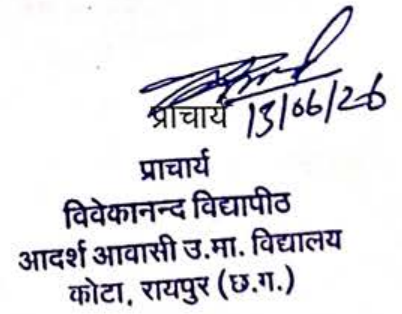 प्राचार्य 13/06/26
प्राचार्य
विवेकानन्द विद्यापीठ
आदर्श आवासी उ.मा. विद्यालय
कोटा, रायपुर (छ.ग.)